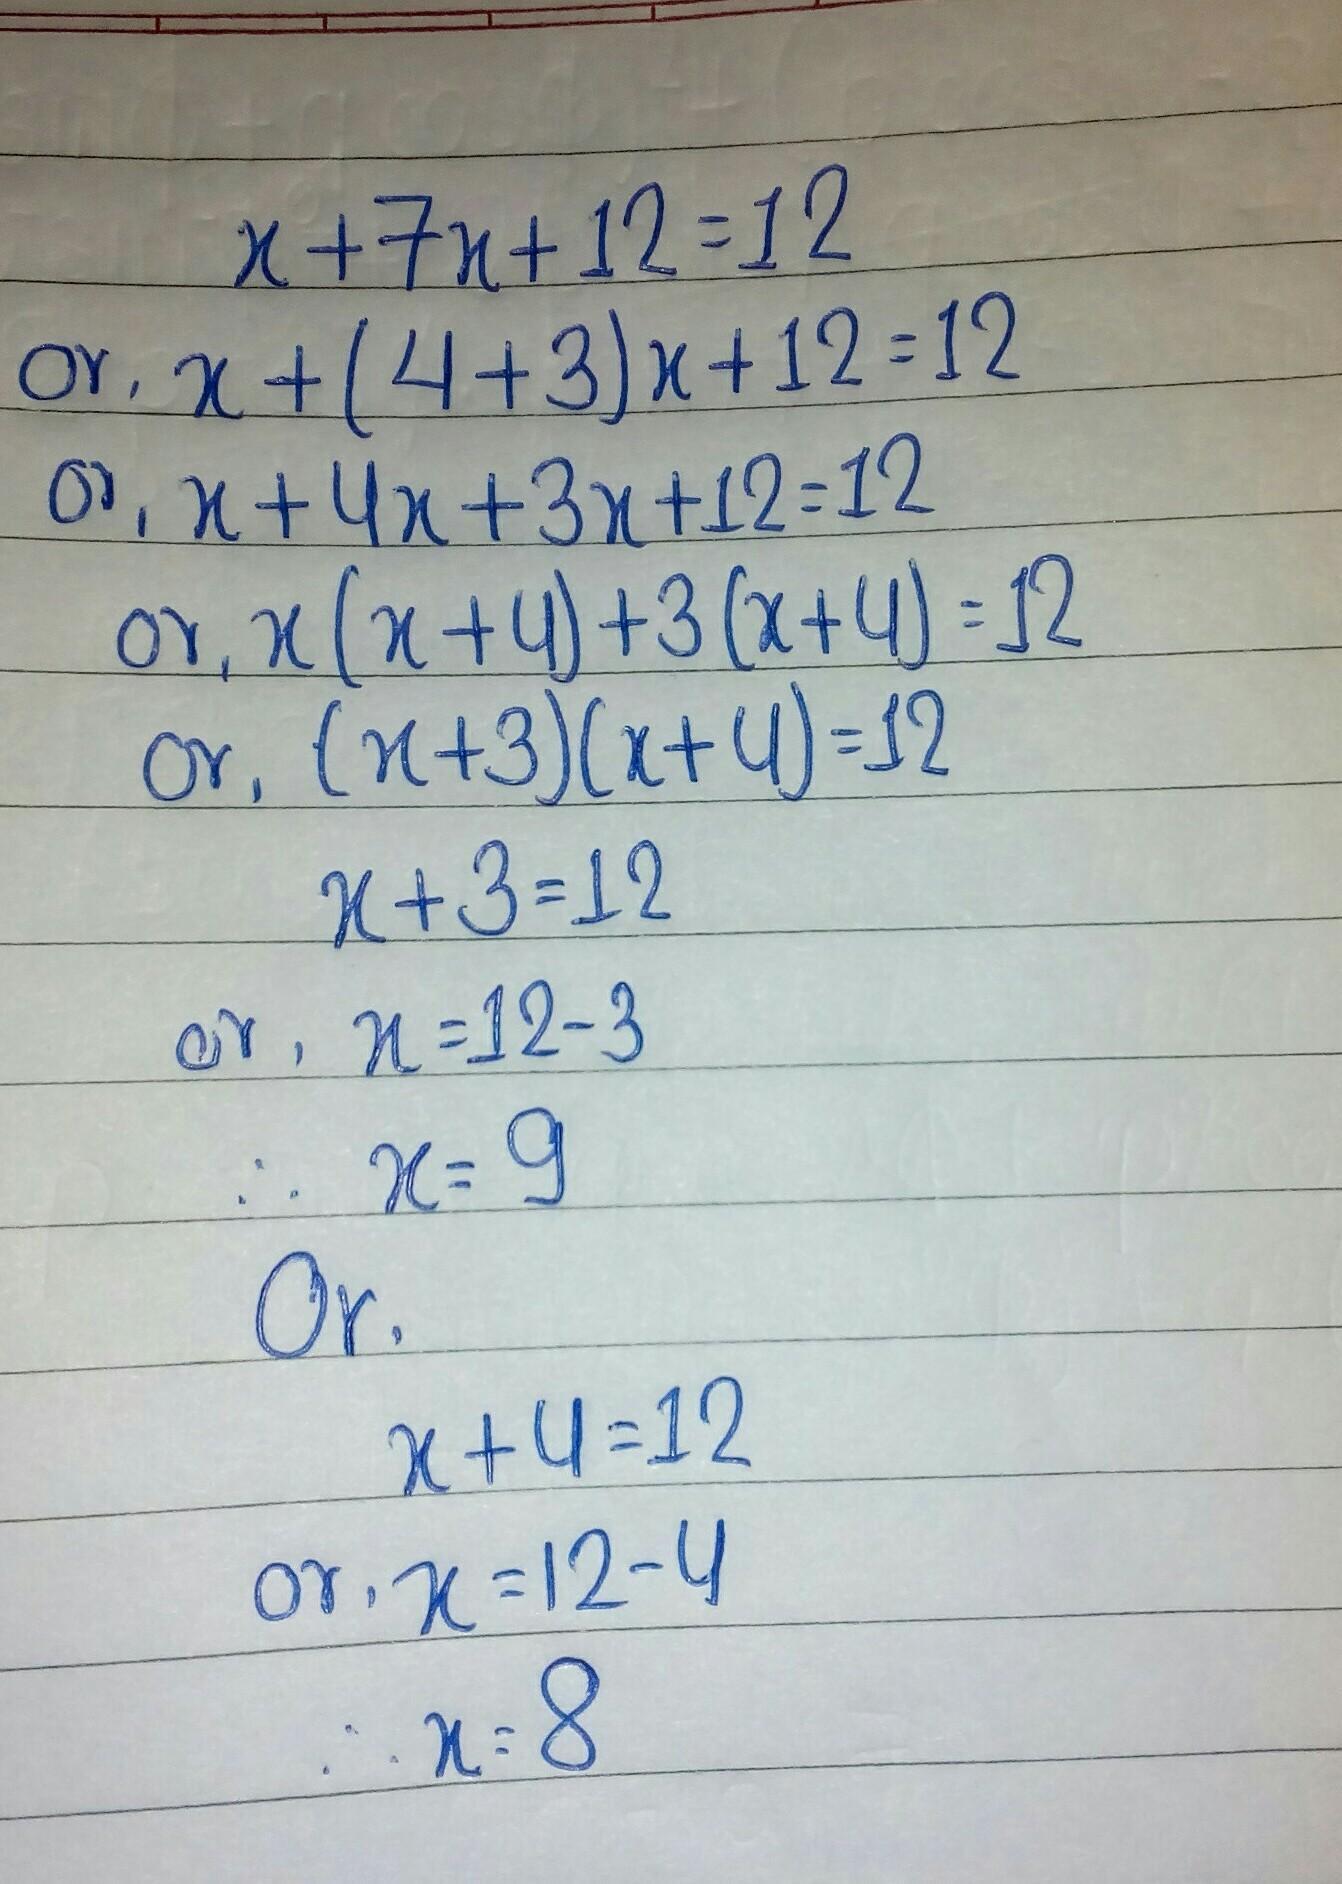 x+7x+12=12
or, x+(4+3)x+12=12
or, x+4x+3x+12=12
or, x(x+4)+3(x+4)=12
or, (x+3)(x+4)=12
x+3=12
or, x=12-3
∴ x=9
Or,
x+4=12
or, x=12-4
∴ x=8